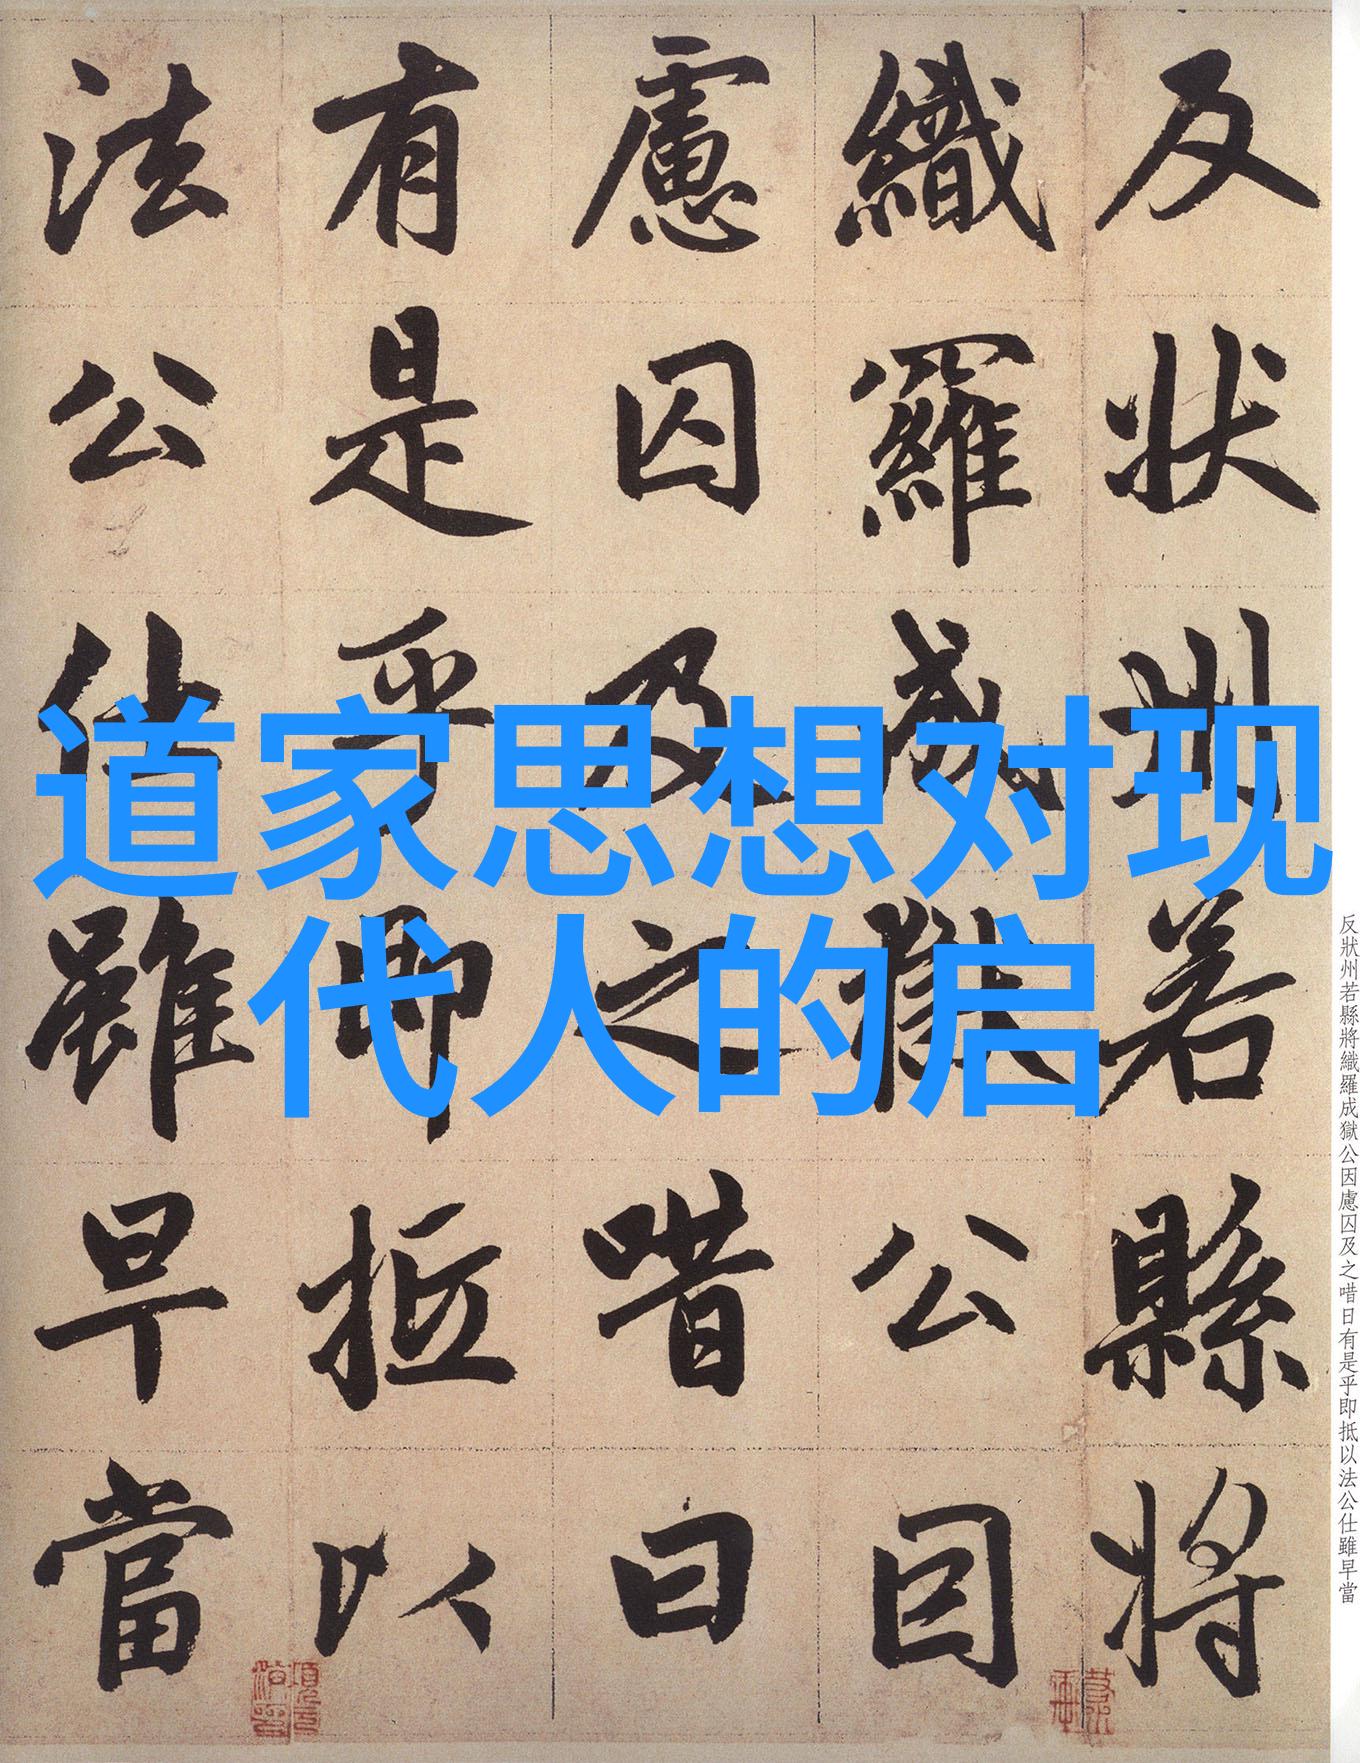 道家思想对现
代人的启
反狀州若縣將
織羅成獄公因
慮囚及之唶曰
有是乎即抵以
法公仕雖早當
反狀州若縣將織羅成獄公因慮囚及之唶日有是乎即抵以法公仕雖早當